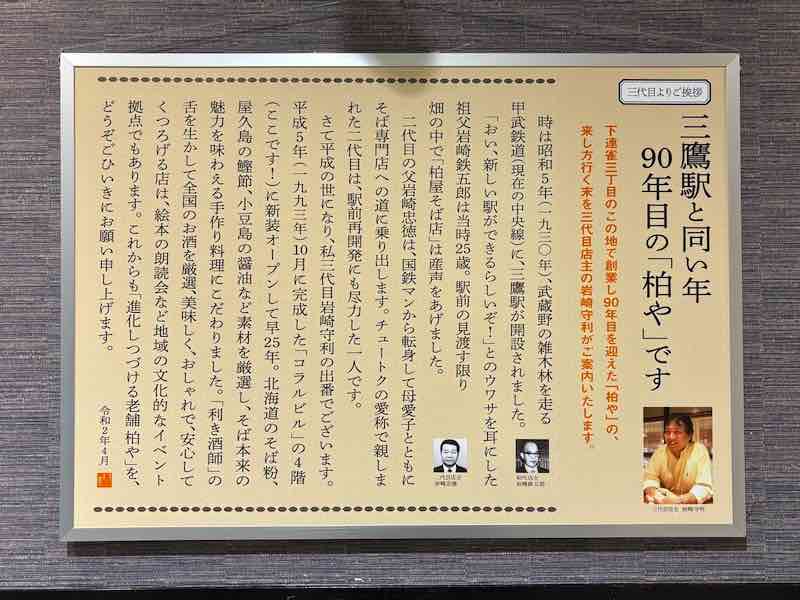 三代目よりご挨拶
三鷹駅と同い年
90年目の「柏や」です
下連雀三丁目のこの地で創業し90年目を迎えた「柏や」の、
来し方行く末を三代目店主の岩崎守利がご案内いたします。
時は昭和5年(一九三〇年)、武蔵野の雑木林を走る
甲武鉄道(現在の中央線)に、三鷹駅が開設されました。
「おい、新しい駅ができるらしいぞ!」とのウワサを耳にした
祖父岩崎鉄五郎は当時25歳。駅前の見渡す限り
畑の中で「柏屋そば店」は産声をあげました。
二代目の父岩崎忠徳は、国鉄マンから転身して母愛子とともに
そば専門店への道に乗り出します。チュートクの愛称で親しま
れた二代目は、駅前再開発にも尽力した一人です。
さて平成の世になり、私三代目岩崎守利の出番でございます。
平成5年(一九九三年)10月に完成した「コラルビル」の4階
(ここです!)に新装オープンして早25年。北海道のそば粉、
屋久島の鰹節、小豆島の醤油など素材を厳選し、そば本来の
魅力を味わえる手作り料理にこだわりました。「利き酒師」の
舌を生かして全国のお酒を厳選、美味しく、おしゃれで、安心して
くつろげる店は、絵本の朗読会など地域の文化的なイベント
拠点でもあります。これからも「進化しつづける老舗 柏や」を、
どうぞごひいきにお願い申し上げます。
令和2年4月
初代店主
岩崎鉄五郎
二代目店主
岩崎忠徳
三代目店主 岩崎守利